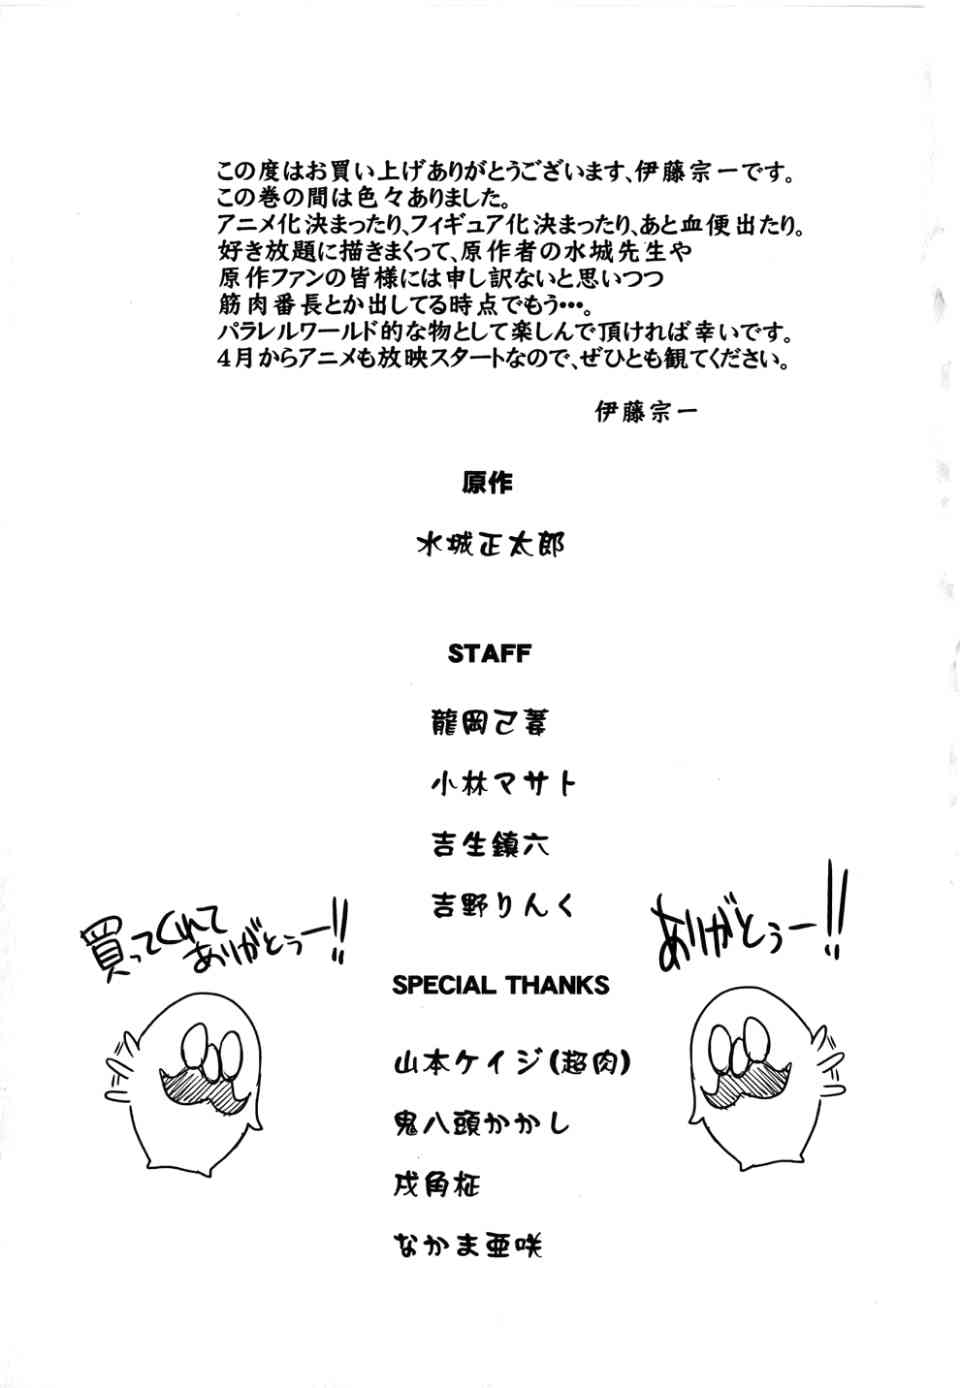 この度はお買い上げありがとうございます、伊藤宗一です。
この巻の間は色々ありました。
アニメ化決まったり、フィギュア化決まったり、あと血便出たり。
好き放題に描きまくって、原作者の水城先生や
原作ファンの皆様には申し訳ないと思いつつ
筋肉番長とか出してる時点でもう・・・。
パラレルワールド的な物として楽しんで頂ければ幸いです。
4月からアニメも放映スタートなので、ぜひとも観てください。
伊藤宗一
原作
水城正太郎
STAFF
龍岡己葦
小林マサト
吉生鎮六
吉野りんく
買ってくれて
ありがとぅー!!
ありがとぅー!!
SPECIAL THANKS
山本ケイジ(超肉)
鬼八頭かかし
戌角柾
なかま亜咲